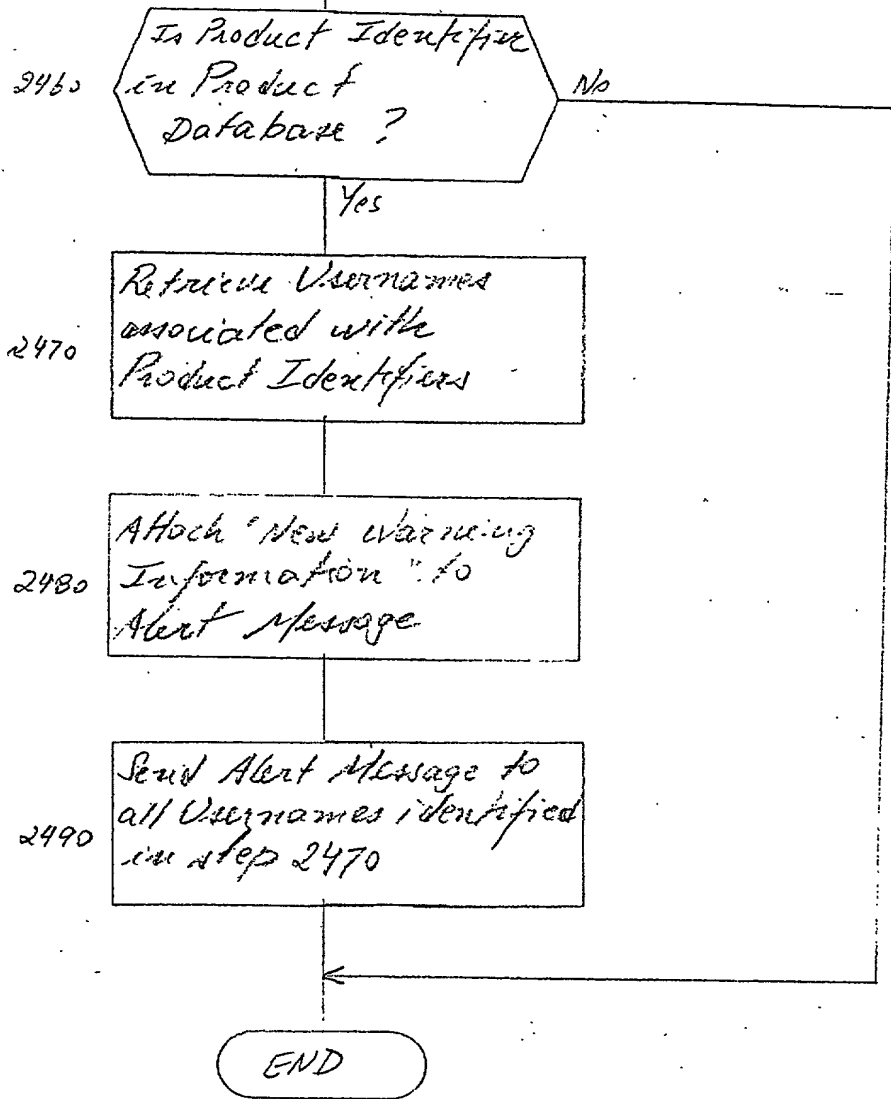 Is Product Identifier
2460 in Product No
Database ?
Yes
Retrieve Usernames
associated with
2470 Product Identifiers
Attach "New Warning
2480 Information" to
Alert Message
Send Alert Message to
all Usernames identified
2490 in step 2470
END